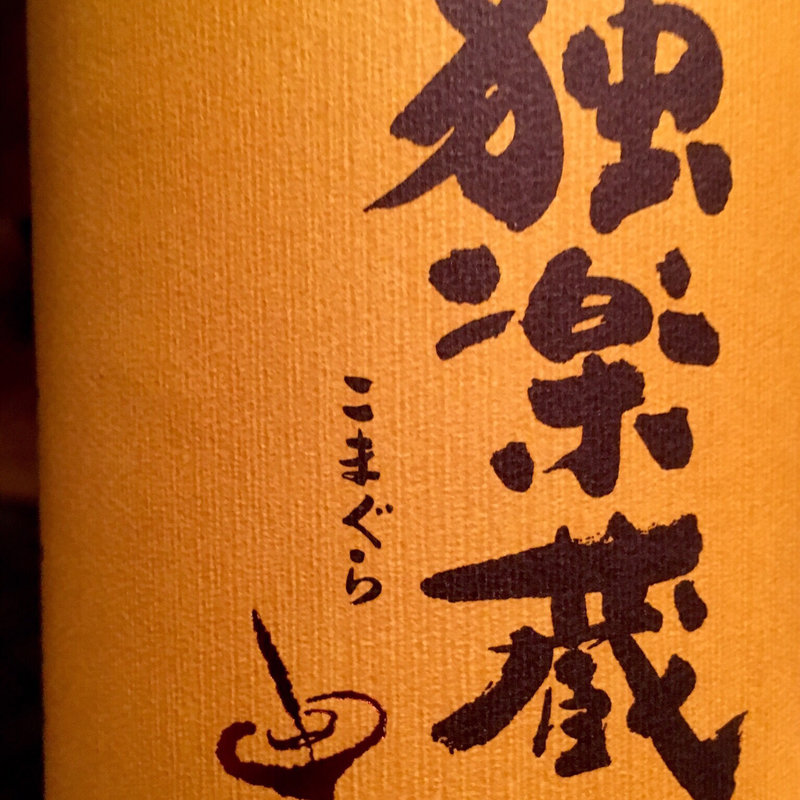 独楽蔵
こまぐら